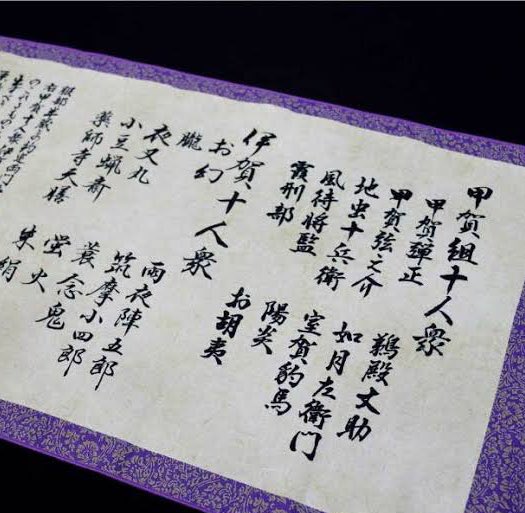 甲賀組十人衆
甲賀彈正
甲賀弦之介
地虫十兵衛
風待将監
霞刑部
鵜殿丈助
如月左衛門
室賀豹馬
陽炎
お胡夷
伊賀十人衆
お幻
朧
夜叉丸
小豆蝋斎
薬師寺天膳
雨夜陣五郎
筑摩小四郎
蓑念鬼
螢火
朱絹
服部